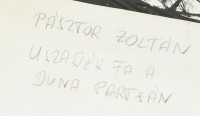 PÁSZTOR ZOLTÁN
USZADÉK FA A
DUNA PARTJÁN